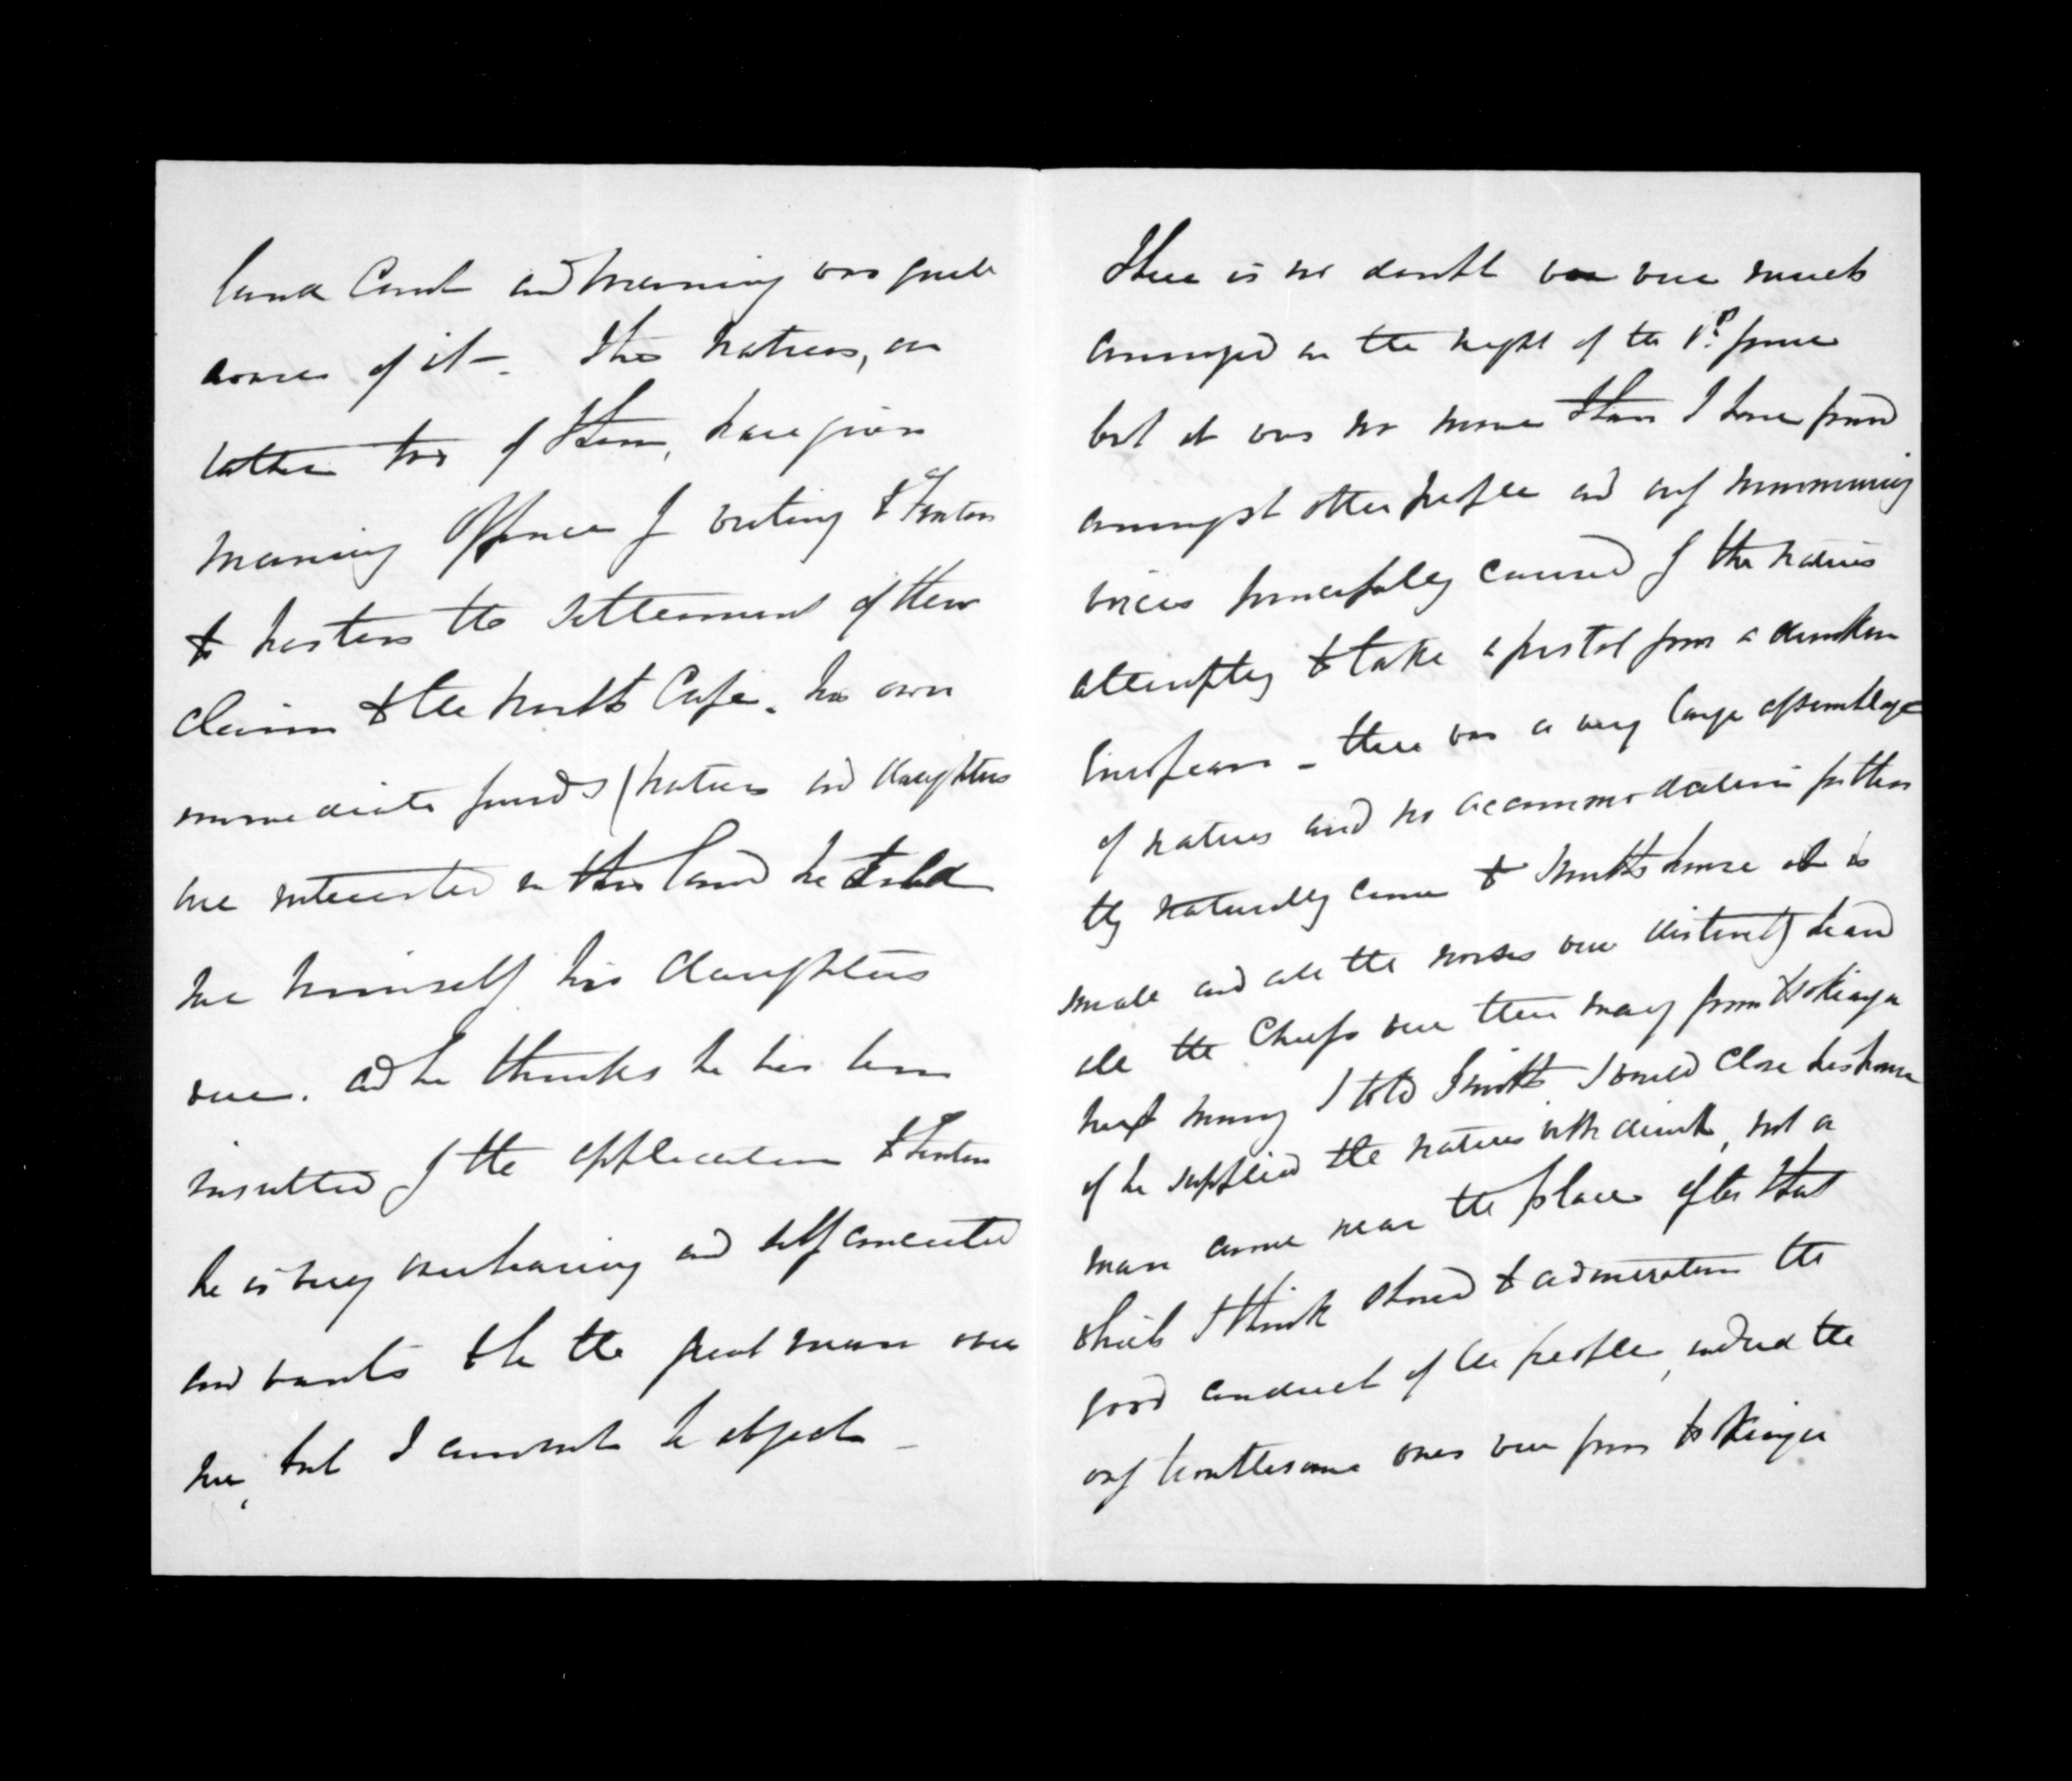 Land Court and Manning was quite
aware of it -. The natives, or
rather two of them, have given
Manning offence by writing to Fenton
to hasten the settlement of their
claim to the North Cape. his own
immediate friends (natives and daughters
are interested in this land he told
me himself his daughters
were. and he thinks he has been
insulted by the application to Fenton
he is very overbearing and self conceited
and wants to be the great man over
me, but I cannot be abject -
There is no doubt we were much
annoyed on the night of the 1st June
but it was no more than I have found
amongst other people and any
voices principally caused by the natives
attempting to take a pistol from a drunken
European - there was a very large assemblage
of natives and no accommodation for them
they naturally came to Smiths house it is
small and all the noises were distinctly heard
all the Chiefs were there many from Hokianga
next morning I told Smith I would close his house
if he supplied the natives with drink, not a
man came near the place after that
which I think showed to admiration the
good conduct of the people, indeed the
only troublesome ones were from Hokianga